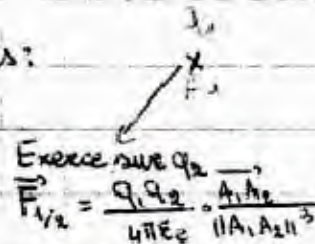 s:
Exerce sur q₂
F⃗₁/₂ = q₁q₂/4πε₀ · A₁A₂⃗/‖A₁A₂‖³